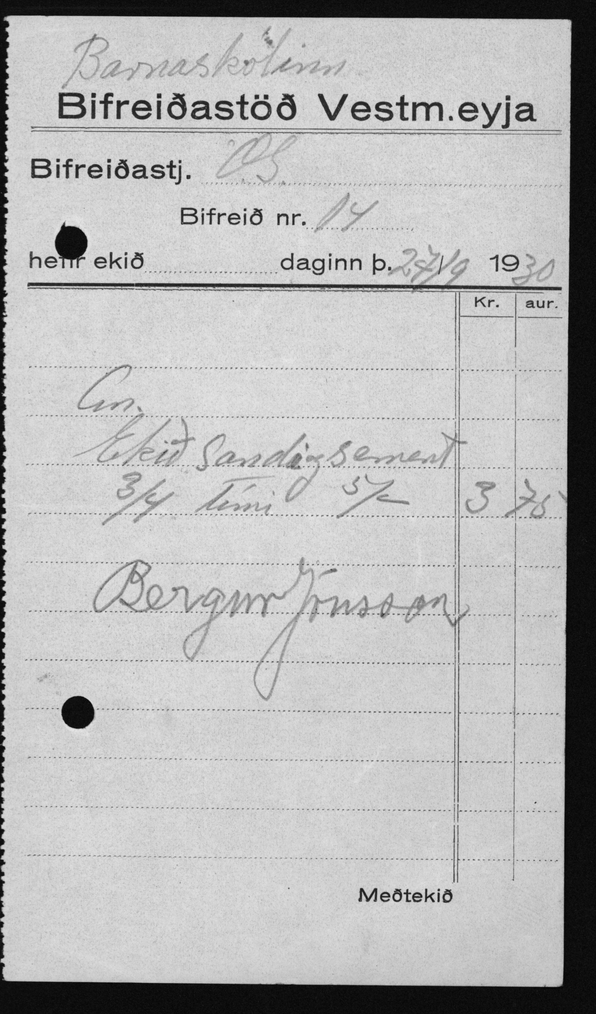 Barnaskólinn
Bifreiðastöð Vestm.eyja
Bifreiðastj. Ó.S.
Bifreið nr. 14
hefir ekið daginn þ. 27/9 1930
Kr. aur.
Ekið Sandi og sement
3/4 tími 5/- 3 75
Bergur Jónsson
Meðtekið